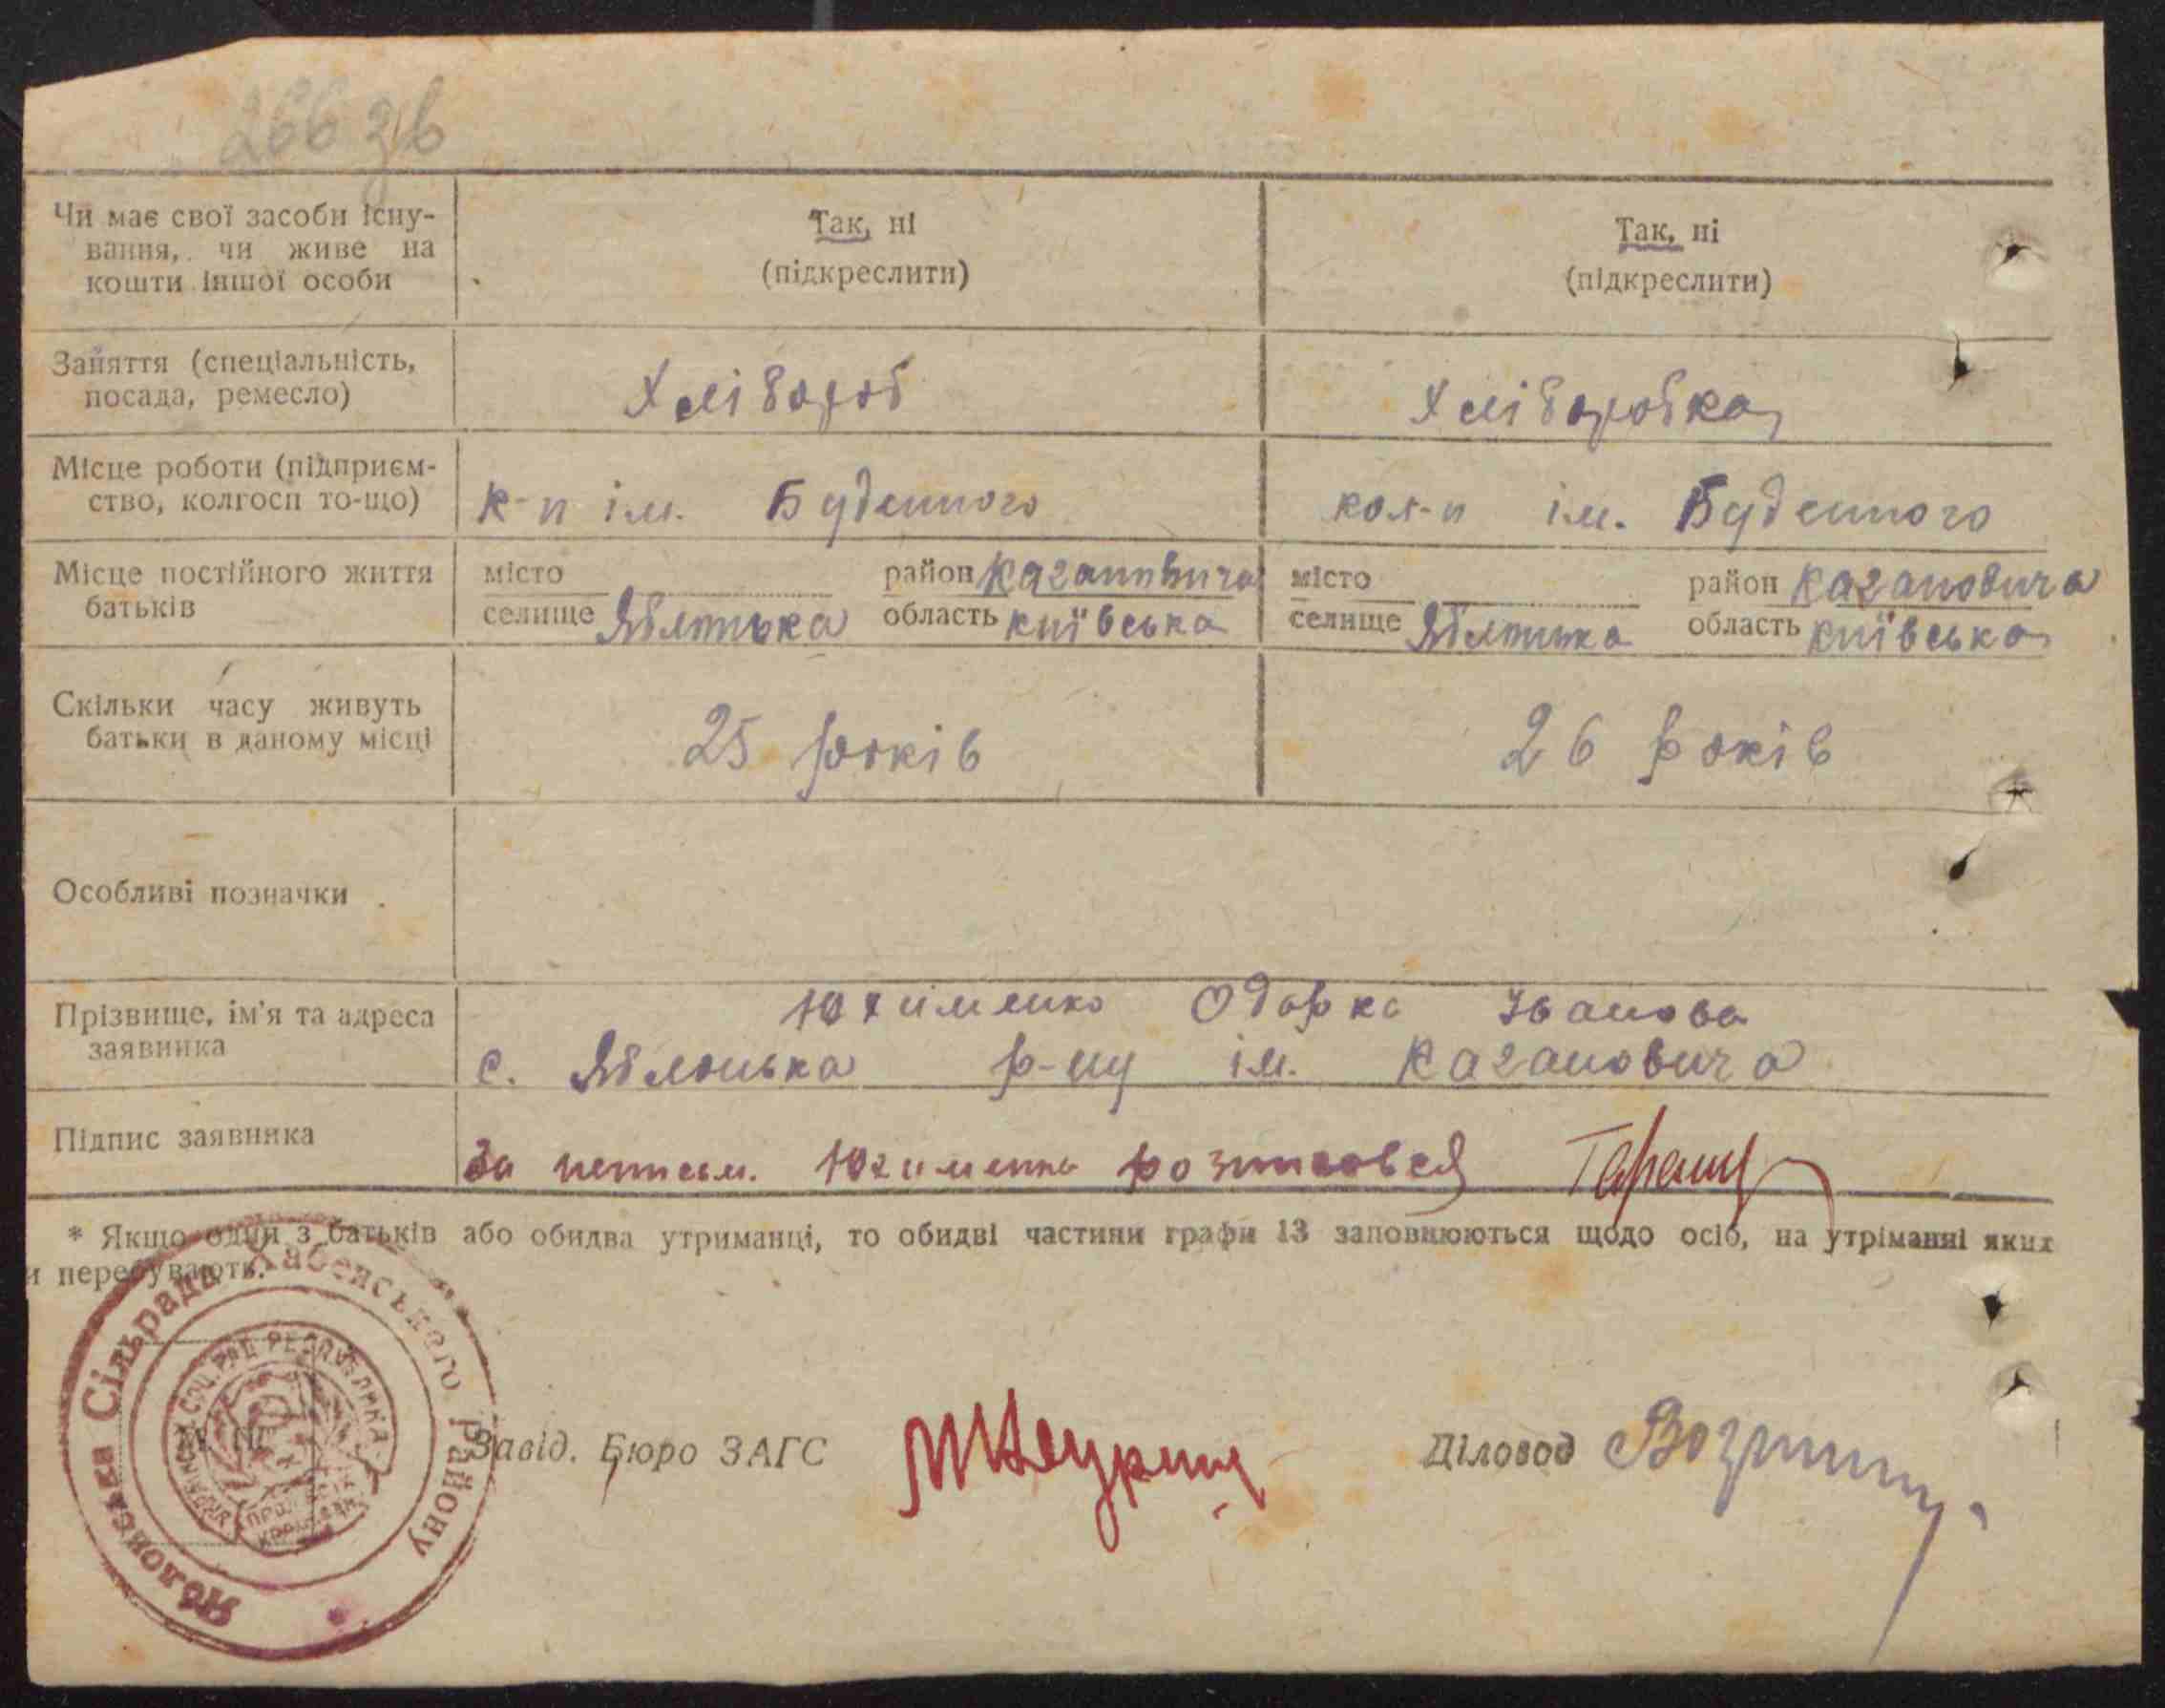 266 зв
Чи має свої засоби існу-
вання, чи живе на
кошти іншої особи
Так, ні
(підкреслити)
Так, ні
(підкреслити)
Заняття (спеціальність,
посада, ремесло)
Хлібороб
Хліборобка
Місце роботи (підприєм-
ство, колгосп то-що)
к-п ім. Буденного
кол-п ім. Буденного
Місце постійного життя
батьків
місто
селище Яблонька
район Кагановича
область Київська
місто
селище Яблонька
район Кагановича
область Київська
Скільки часу живуть
батьки в даному місці
25 років
26 років
Особливі позначки
Прізвище, ім'я та адреса
заявника
Юхименко Одарка Іванова
с. Яблонька р-ну ім. Кагановича
Підпис заявника
За Юхименко розписався
* Якщо один з батьків або обидва утриманці, то обидві частини графи 13 заповнюються щодо осіб, на утріманні яких
и перебувають.
Яблонська Сільрада Хабенського Району
Завід. Бюро ЗАГС
Діловод